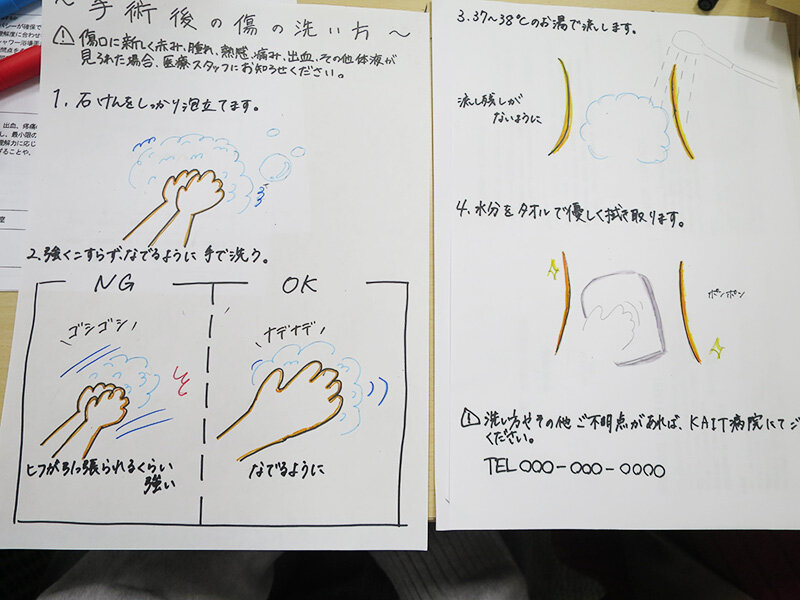 ~手術後の傷の洗い方~
⚠傷口に新しく赤み、腫れ、熱感、痛み、出血、その他体液が
見られた場合、医療スタッフにお知らせください。
1. 石けんをしっかり泡立てます。
2.強くこすらず、なでるように 手で洗う。
NG
OK
ゴシゴシ
ナデナデ
ヒフが引っ張られるくらい
強い
なでるように
3. 37~38℃のお湯で流します。
流し残しが
ないように
4. 水分をタオルで優しく拭き取ります。
ポンポン
洗い方やその他ご不明点があれば、KAIT病院にてご
ください。
TEL○○○-○○○-○○○○